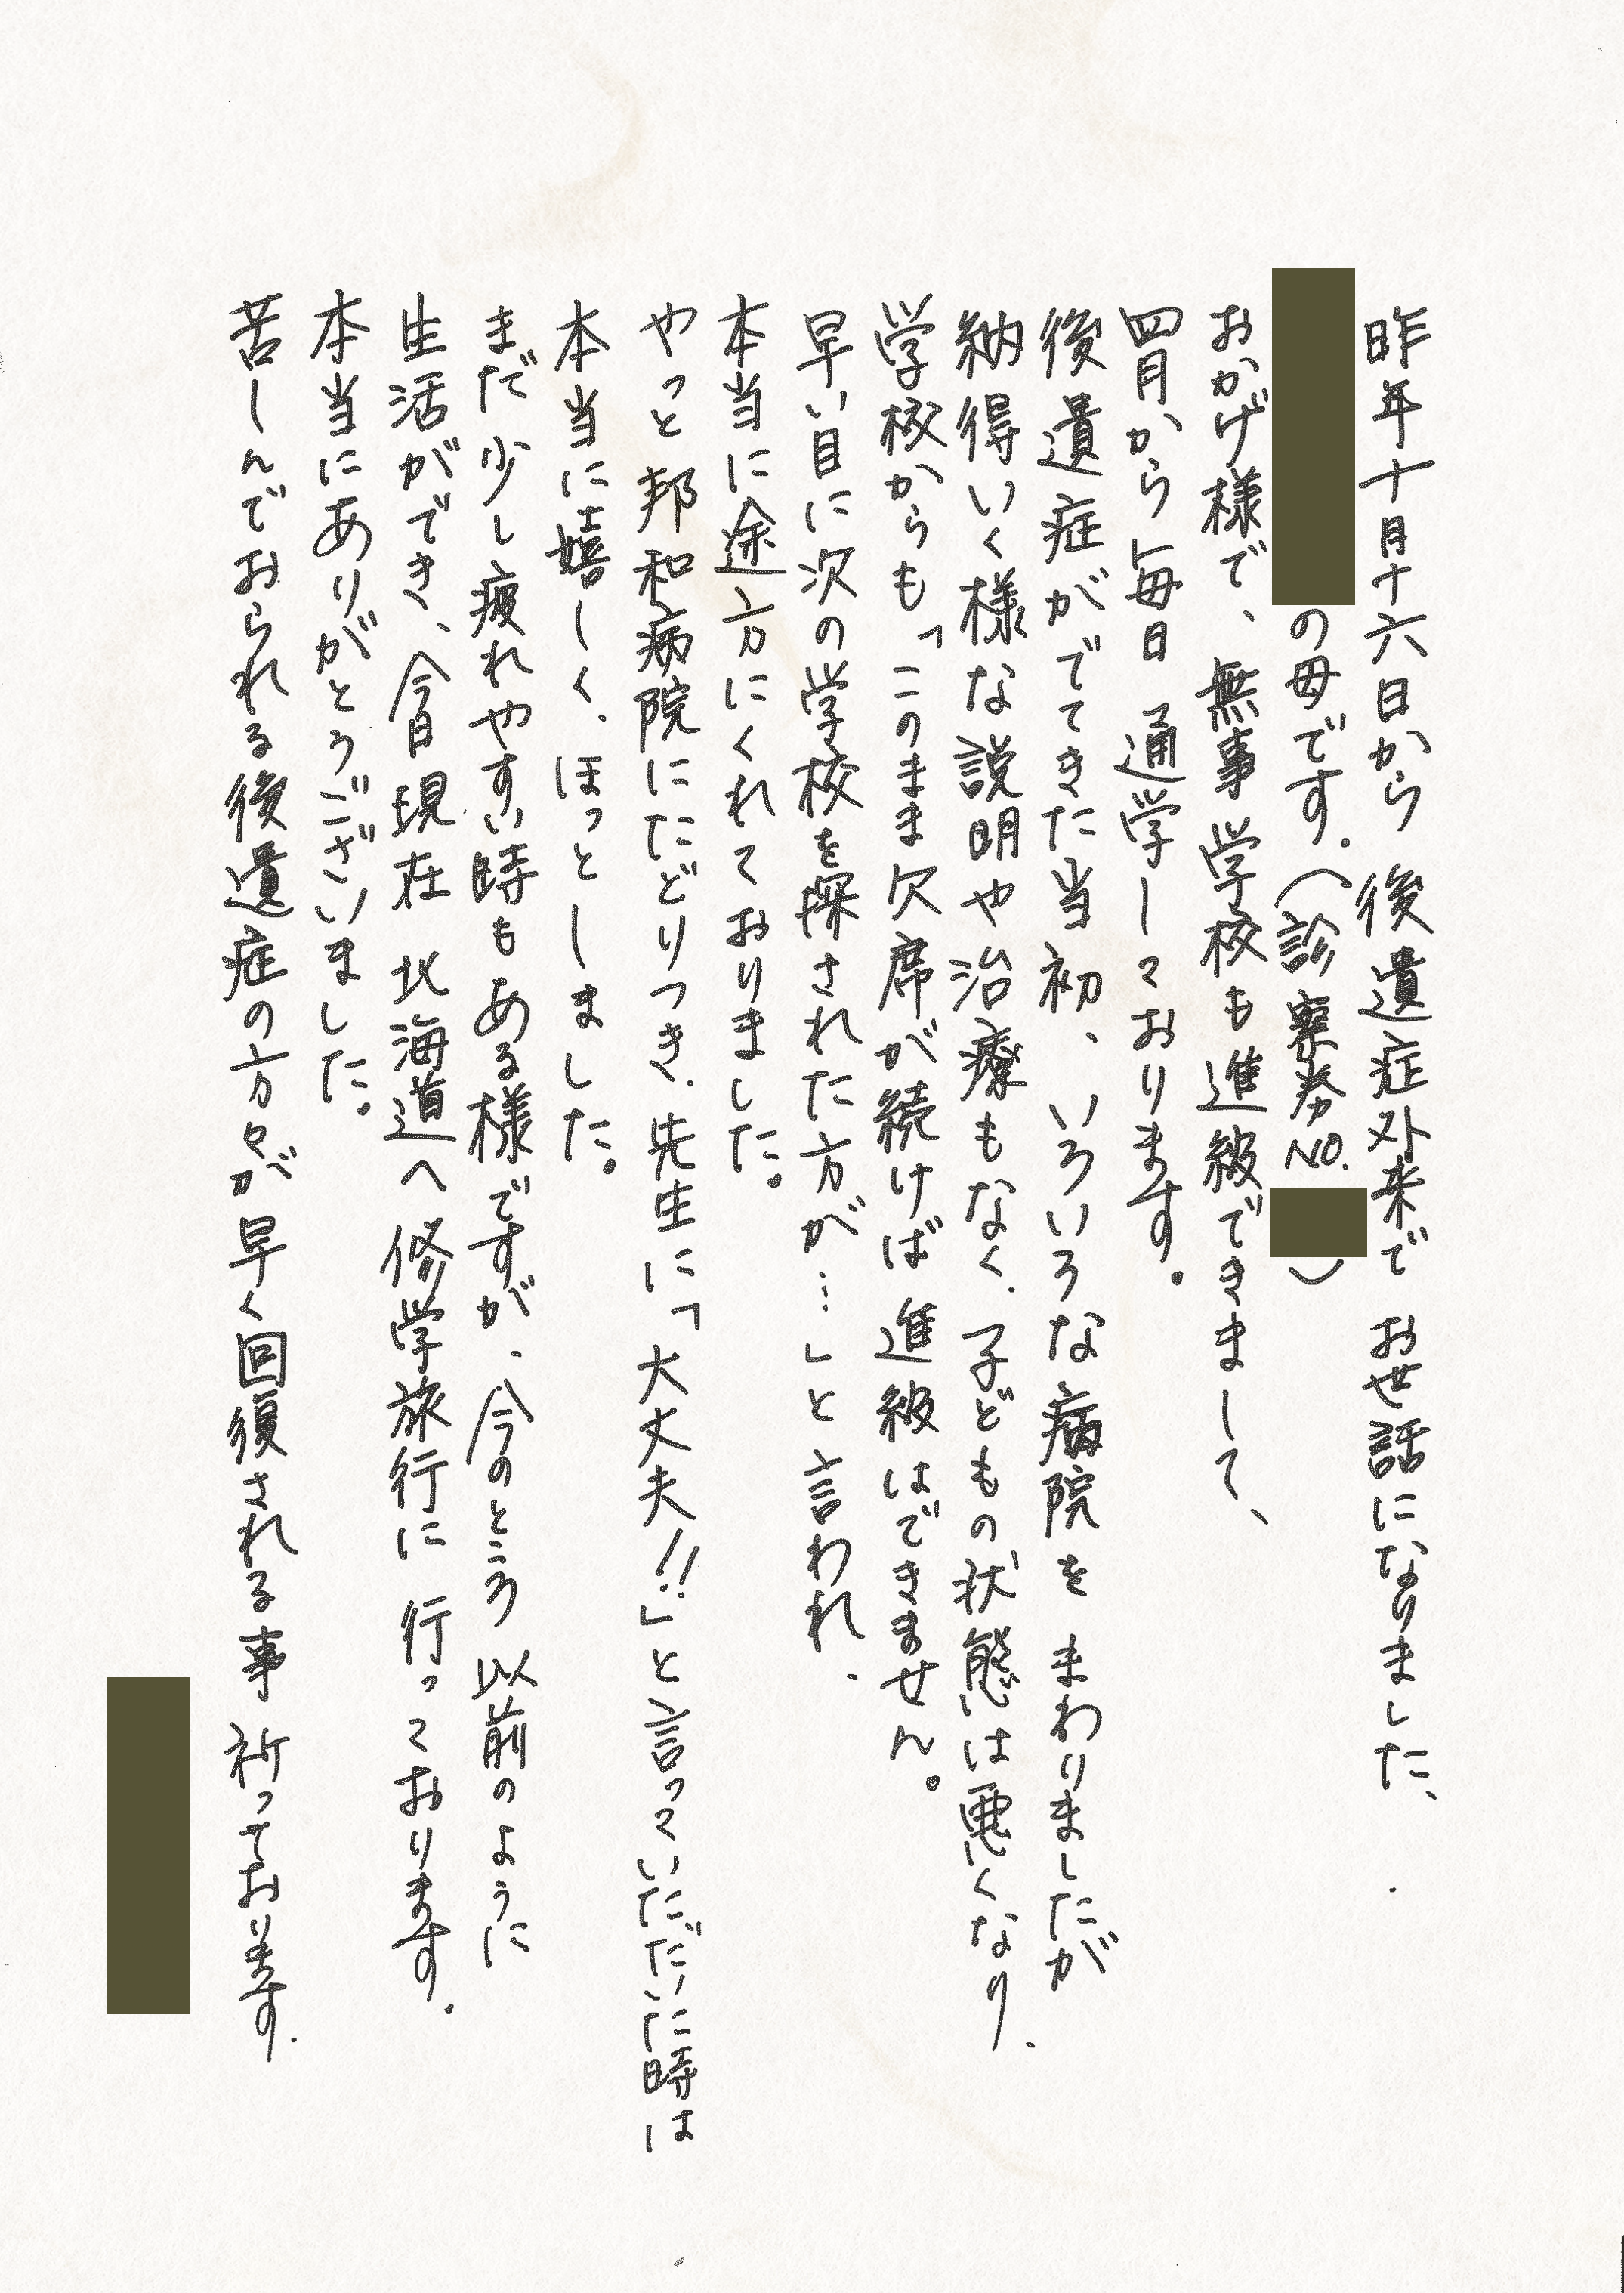 昨年十月十六日から 後遺症外来で お世話になりました、
の母です。(診察券NO. )
おかげ様で、無事 学校も進級できまして、
四月から毎日 通学しております。
後遺症がでてきた当初、いろいろな病院を まわりましたが
納得いく様な説明や治療もなく、子どもの状態は悪くなり、
学校からも「このまま欠席が続けば 進級はできません。
早い目に次の学校を探された方が…」と言われ、
本当に途方にくれておりました。
やっと邦和病院にたどりつき、先生に「大丈夫!!」と言っていただいた時は
本当に嬉しく、ほっとしました。
まだ少し疲れやすい時もある様ですが、今のところ 以前のように
生活ができ、今日現在 北海道へ 修学旅行に 行っております。
本当にありがとうございました。
苦しんでおられる後遺症の方々が 早く回復される事 祈っております。